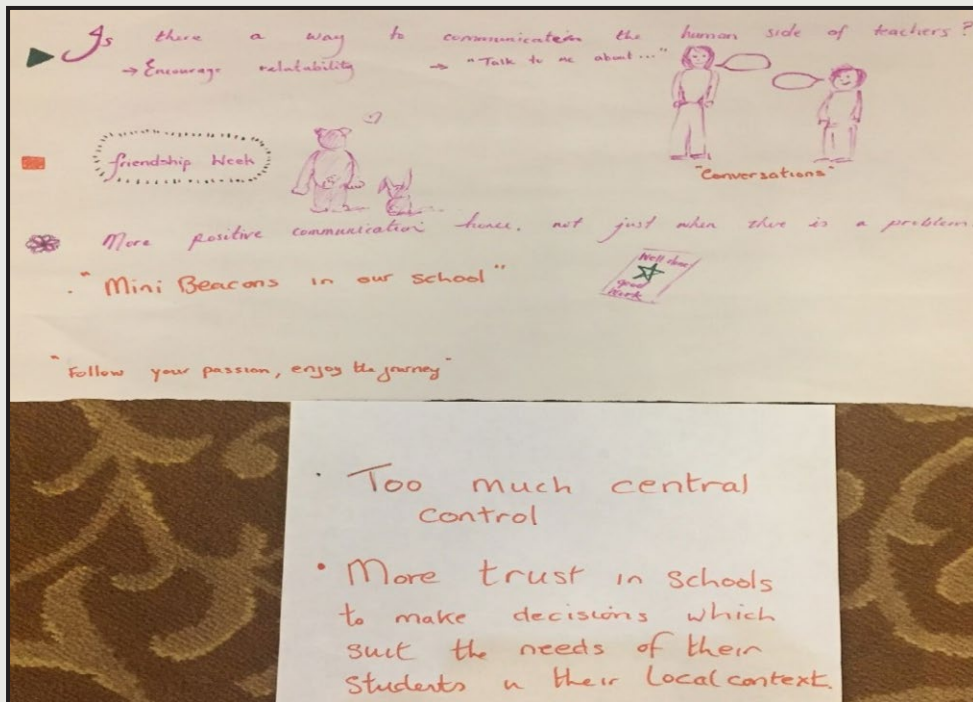 Is there a way to communication the human side of teachers?
→ Encourage relatability → "Talk to me about..."
"Conversations"
friendship Week
More positive communication hence, not just when there is a problem
Well done
good
Work
"Mini Beacons in our school"
"Follow your passion, enjoy the journey"
• Too much central
control
• More trust in schools
to make decisions which
suit the needs of their
students in their local context.